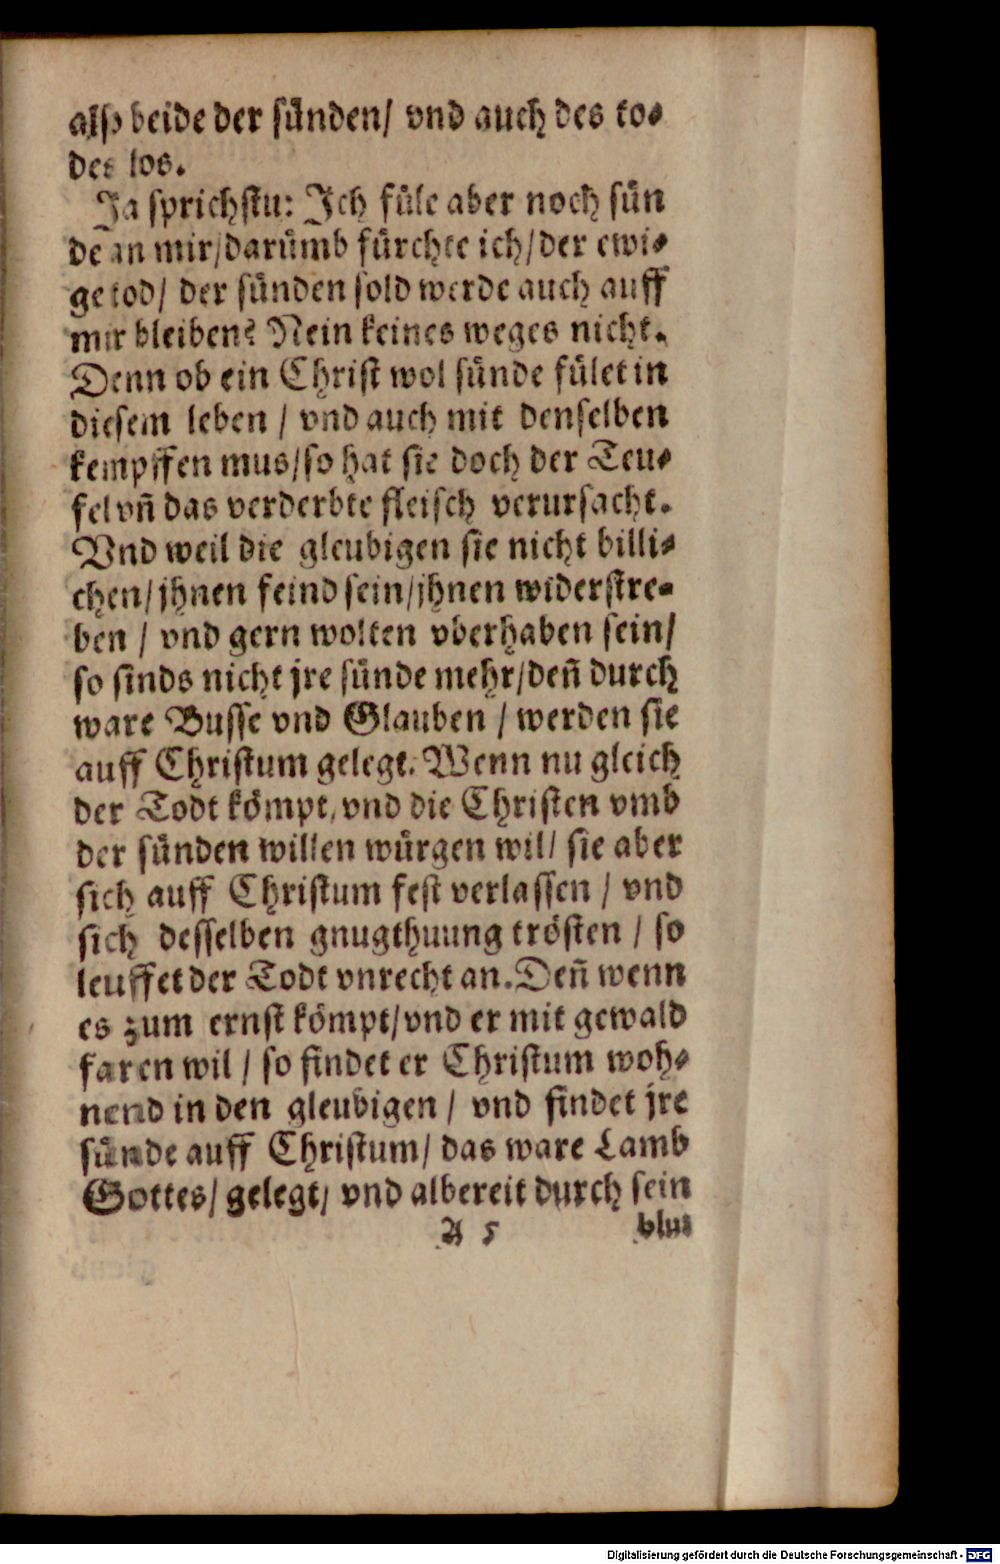 alſo beide der ſünden/ vnd auch des to⸗
des los.
Ja ſprichſtu: Ich füle aber noch ſün
de an mir/darümb fürchte ich/der ewi⸗
ge tod/ der ſünden ſold werde auch auff
mir bleiben? Nein keines weges nicht.
Denn ob ein Chriſt wol ſünde fület in
dieſem leben / vnd auch mit denſelben
kempffen mus/ſo hat ſie doch der Teu⸗
fel vñ das verderbte fleiſch verurſacht.
Vnd weil die gleubigen ſie nicht billi⸗
chen/jhnen feind ſein/jhnen widerſtre⸗
ben / vnd gern wolten vberhaben ſein/
ſo ſinds nicht jre ſünde mehr/deñ durch
ware Buſſe vnd Glauben / werden ſie
auff Chriſtum gelegt. Wenn nu gleich
der Todt kömpt/vnd die Chriſten vmb
der ſünden willen würgen wil/ ſie aber
ſich auff Chriſtum feſt verlaſſen / vnd
ſich deſſelben gnugthuung tröſten / ſo
leuffet der Todt vnrecht an. Deñ wenn
es zum ernſt kömpt/vnd er mit gewald
faren wil / ſo findet er Chriſtum woh⸗
nend in den gleubigen / vnd findet jre
ſünde auff Chriſtum/ das ware Lamb
Gottes/ gelegt/ vnd albereit durch ſein
A 5 blut
Digitalisierung gefördert durch die Deutsche Forschungsgemeinschaft - DFG